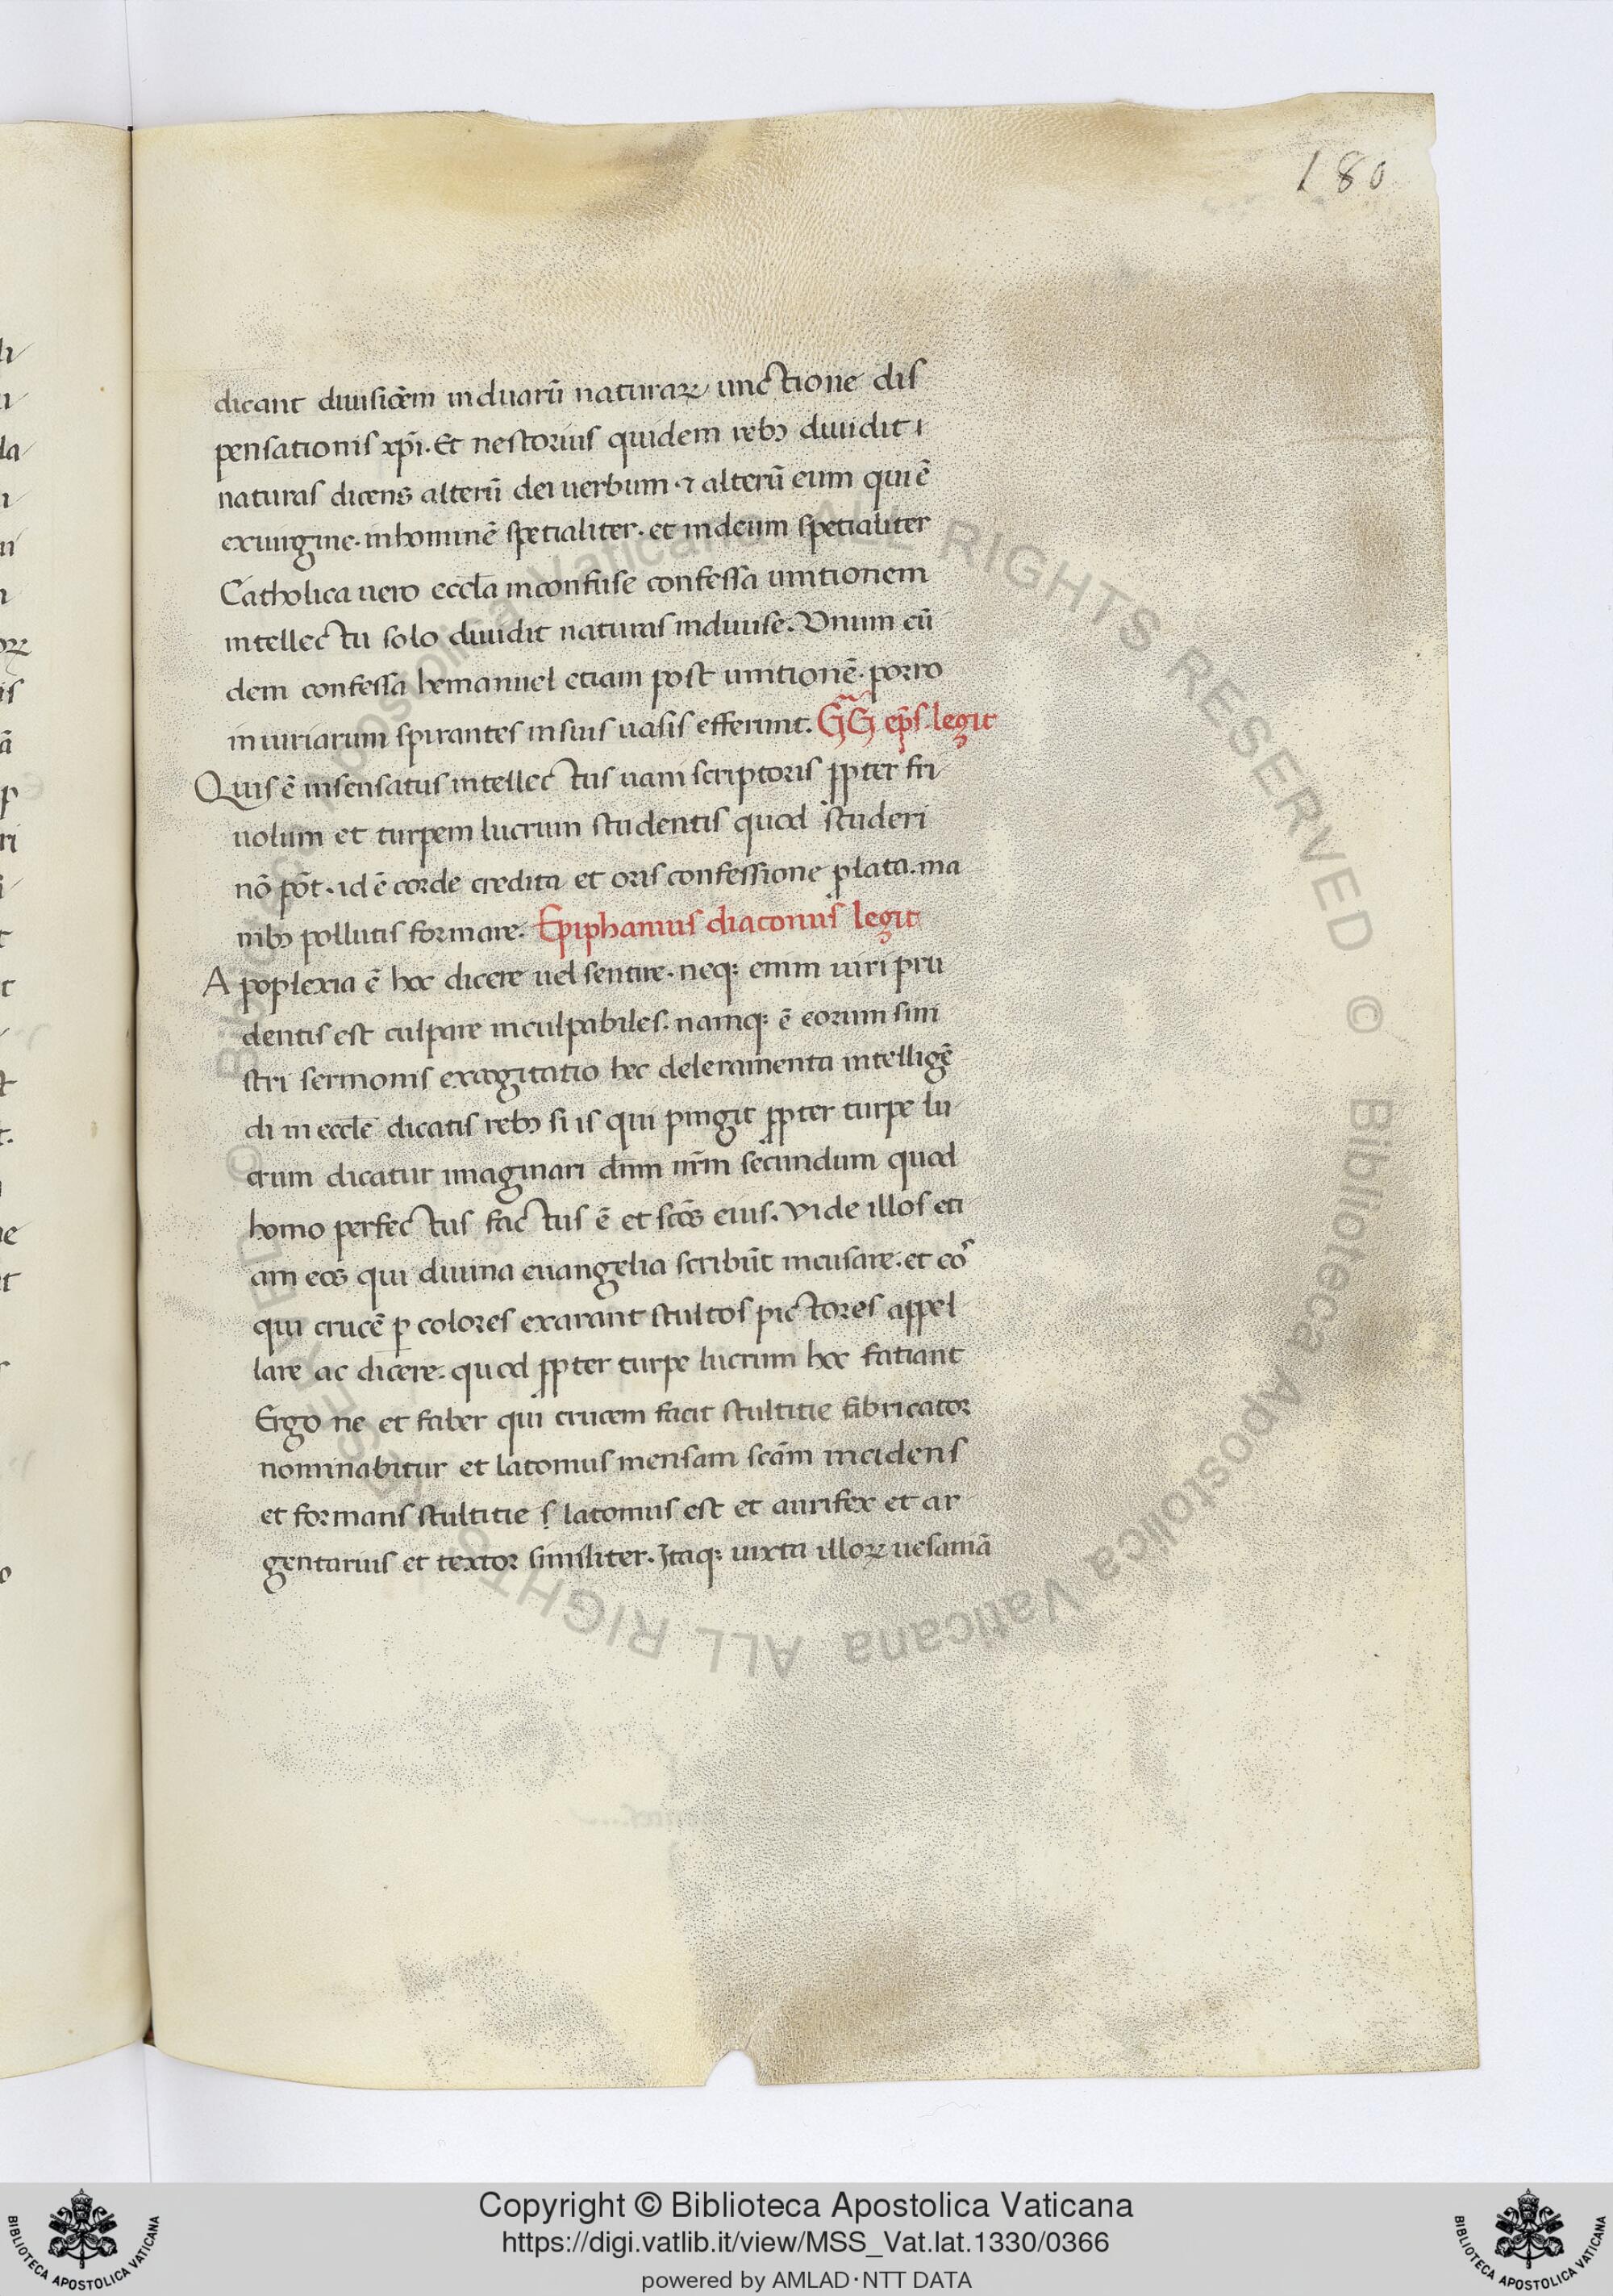 180
dicant diuisiōem in duarū naturaꝝ unctione dis
pensationis xp̄i. Et nestorius quidem reb; diuidit i
naturas dicens alterū dei uerbum. ⁊ alterū eum qui ē
ex uirgine. in hominē spetialiter. et in deum spetialiter
Catholica uero eccl̄a inconfuse confessa unitionem
intellectu solo diuidit naturas indiuise. Vnum eū
dem confessa hemanuel etiam post unitionē. porro
iniuriarum spirantes in suis uasis efferunt. G̃G̃ ep̄s. legit
Quis ē insensatus intellectus uani scriptoris ꝓpter fri
uolum et turpem lucrum studentis quod studeri
nō pōt. id ē corde credita et oris confessione ꝓlata. ma
nib; pollutis formare. Epiphanius diaconus legit
Apoplexia ē hoc dicere uel sentire. neq; enim uiri pru
dentis est culpare inculpabiles. namq; ē eorum sini
stri sermonis excogitatio hec deleramenta intelligē
di in eccl̄e dicatis reb; si is qui pingit ꝓpter turpe lu
crum dicatur imaginari dn̄m nr̄m secundum quod
homo perfectus factus ē et scōs eius. Vide illos eti
am eos qui diuina euangelia scribūt incusare. et eos
qui crucē ꝑ colores exarant stultos pictores appel
lare ac dicere. quod ꝓpter turpe lucrum hoc fatiant
Ergo ne et faber qui crucem facit stultitie fabricator
nominabitur et latomus mensam scām incidens
et formans stultitie s; latomus est et aurifex et ar
gentarius et textor similiter. Itaq; iuxta illoꝝ uesaniā
© Biblioteca Apostolica Vaticana ALL RIGHTS RESERVED © Biblioteca Apostolica Vaticana ALL RIGHTS RESERVED
Copyright © Biblioteca Apostolica Vaticana
https://digi.vatlib.it/view/MSS_Vat.lat.1330/0366
powered by AMLAD·NTT DATA
BIBLIOTECA APOSTOLICA VATICANA
BIBLIOTECA APOSTOLICA VATICANA